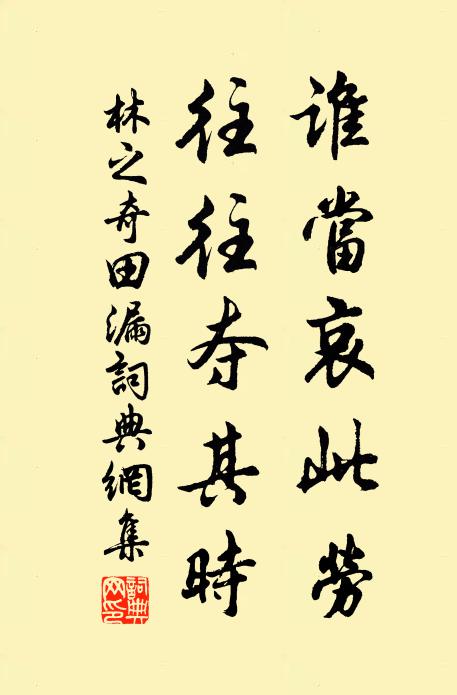 誰當哀此勞
往往夺其時
林之奇田漏詞典網集
詞典
网印